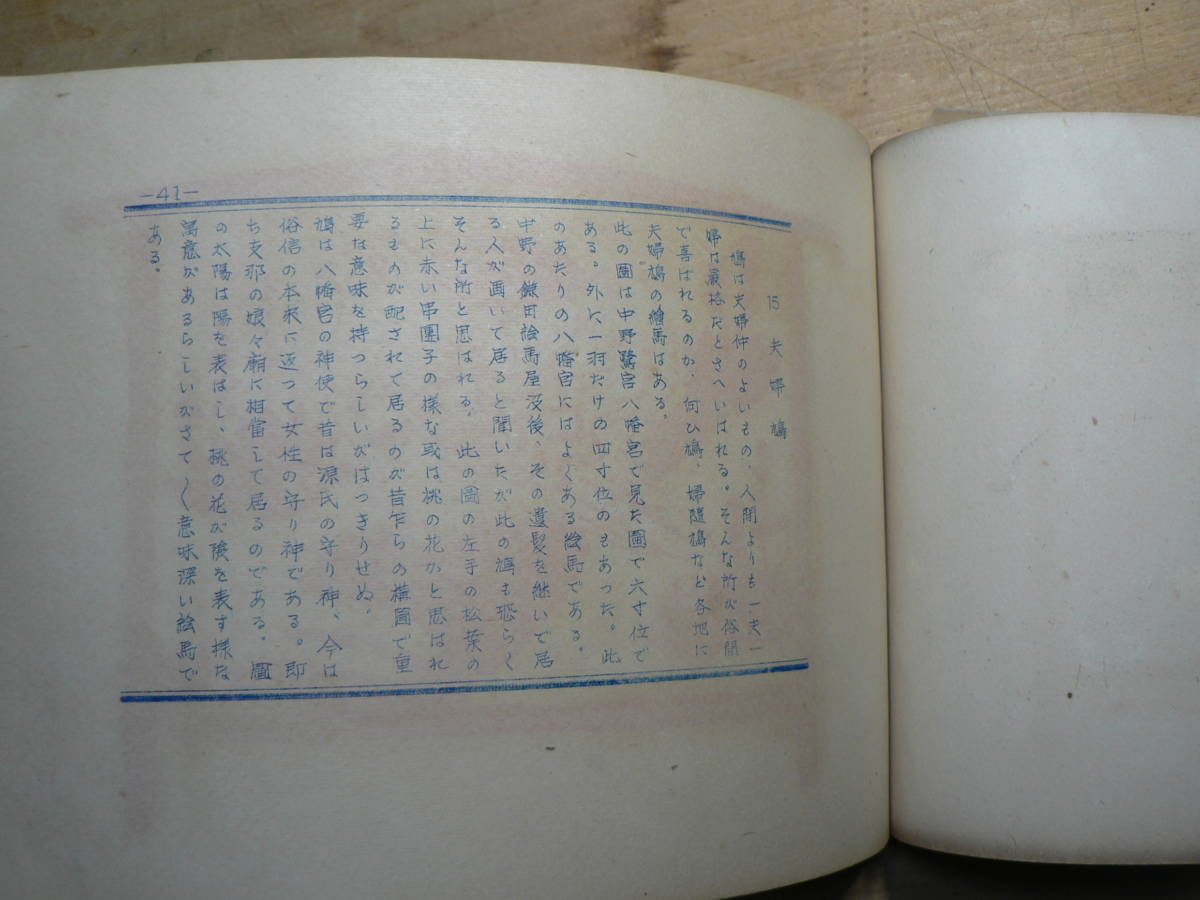 15 夫婦鳩
鳩は夫婦仲のよいもの、人間よりも一夫一
婦は厳格だとさへいはれる。そんな所が俗間
で喜ばれるのか、向ひ鳩、婦随鳩など各地に
夫婦鳩の繪馬はある。
此の圖は中野鷺宮八幡宮で見た圖で六寸位で
ある。外に一羽だけの四寸位のもあった。此
のあたりの八幡宮にはよくある絵馬である。
中野の鎌田絵馬屋没後、その遺髪を継いで居
る人が画いて居ると聞いたが此の鳩も恐らく
そんな所と思はれる。此の圖の左手の松葉の
上に赤い串團子の様な或は桃の花かと思はれ
るものが配されて居るのが昔乍らの構圖で重
要な意味を持つらしいがはっきりせぬ。
鳩は八幡宮の神使で昔は源氏の守り神、今は
俗信の本来に返つて女性の守り神である。即
ち支那の娘々廟に相當して居るのである。圖
の太陽は陽を表はし、桃の花が陰を表す様な
寓意があるらしいがさて〱意味深い絵馬で
ある。
—41—